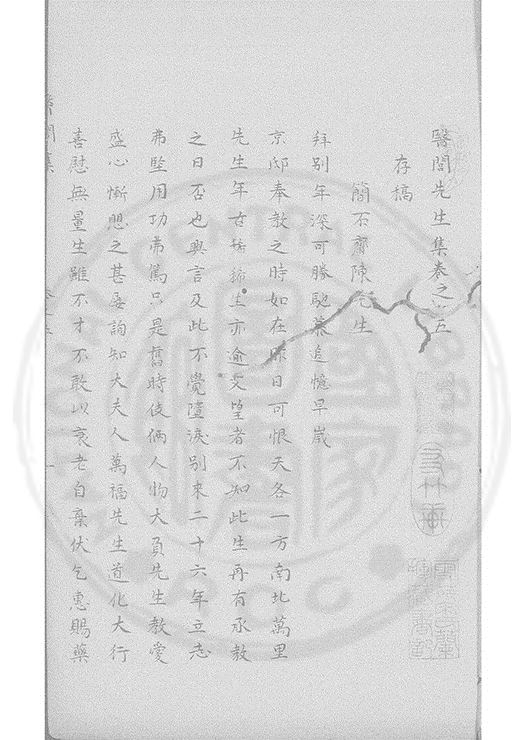 醫閭先生集卷之五
存稿
簡石齋陳先生
拜別年深可勝馳慕追憶早歲
京邸奉教之時如在昨日可恨天各一方南北萬里
先生年古稀生亦逾艾望者不知此生再有承教
之日否也興言及此不覺墮淚別來二十六年立志
弗堅用功弗篤只是舊時伎倆人物大負先生教愛
盛心慚恧之甚屢詢知大夫人萬福先生道化大行
善慰無量生雖不才不敢以衰老自棄伏乞惠賜藥